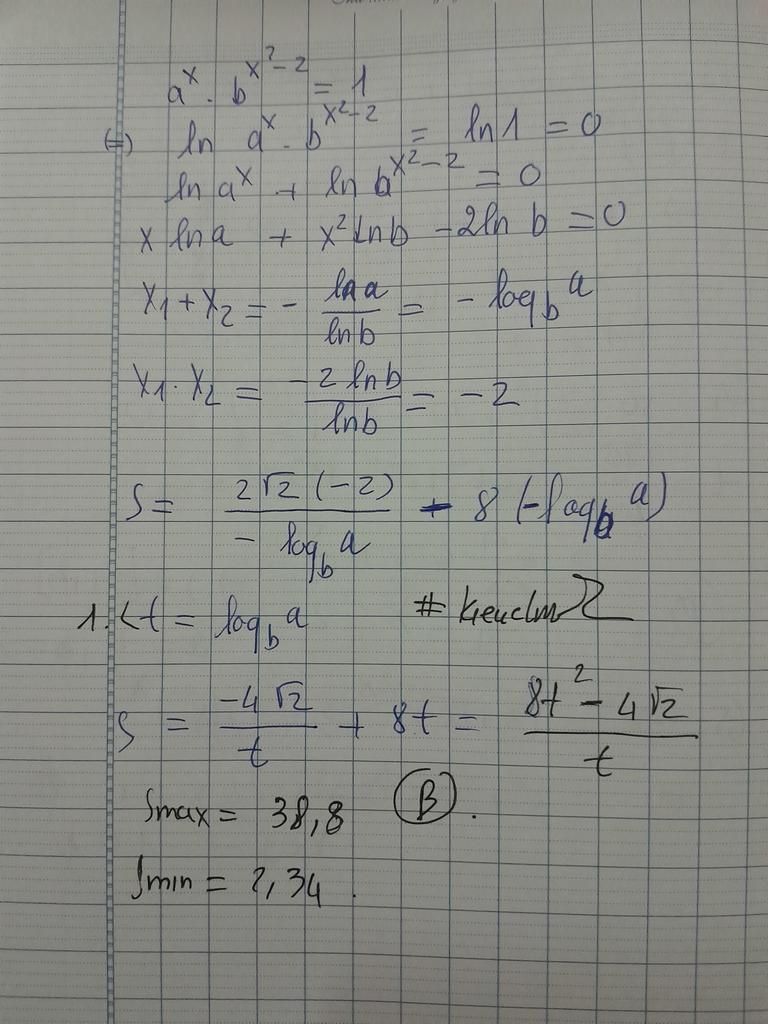 a^x . b^(x^2-2) = 1
(=) ln a^x . b^(x^2-2) = ln1 = 0
ln a^x + ln b^(x^2-2) = 0
x ln a + x^2 ln b - 2ln b = 0
x_1 + x_2 = - (ln a)/(ln b) = - log_b a
x_1 . x_2 = (-2 ln b)/(ln b) = -2
S = (2√2 (-2))/(- log_b a) - 8 (-log_b a)
1 < t = log_b a
S = (-4√2)/t + 8t = (8t^2 - 4√2)/t
Smax = 38,8 (B).
Smin = 2,34.